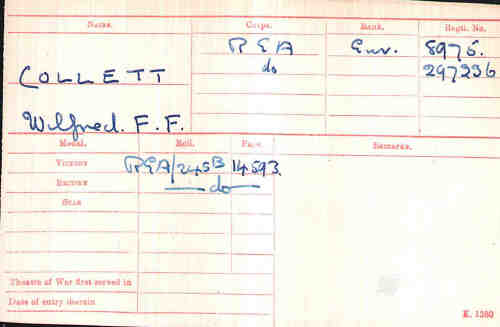 Name. Corps. Rank. Regtl. No.
R F A Gnr. 8976.
COLLETT do 297236
Wilfred. F. F.
Medal. Roll. Page. Remarks.
VICTORY RFA/245B 14593.
BRITISH do
STAR
Theatre of War first served in
Date of entry therein
K. 1380